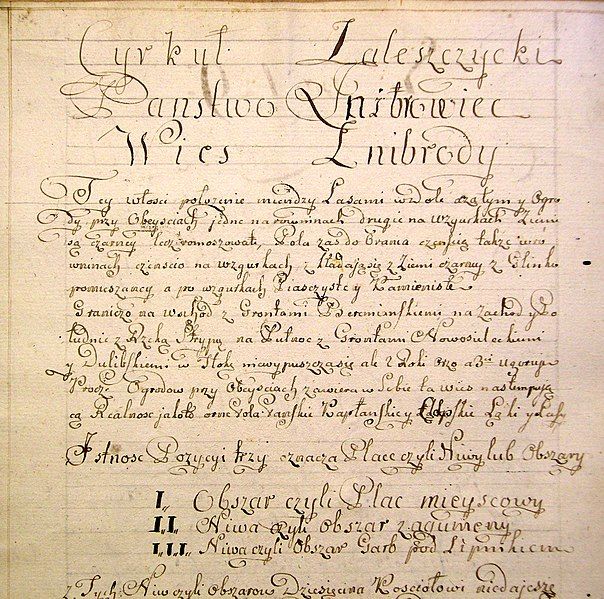 Cyrkuł Zaleszczycki
Panstwo
Wies Znibrody
Tey włosci położenie miendzy Lasami w Dole y Ogro
dy przy Obeysciach jedne na rowninach drugie na wzgurkach Ziemi
są czarney lecz Pola zas do Orania częscią także na ro
wninach częnscio na wzgurkach z kładająsię z Ziemi czarney z Glinko
pomięszaney a po wzgurkach Piasczyste y Kamieniste
Graniczo na wschod z Grontami na zachod y Po
łudnie z Rzeką Strypą na Pułnoc z Grontami Nowosuleckiemi
y Dulibskiemi w niewypuszczasię ale 2 Roki Orzo a 3ci ugoruje
Procz Ogrodow przy Obeysciach zawiera w Sobie ta wies nastempują
cą Realnosc jakoto orne Pola Panskie Kapłanskie y Chłopskie Łąki y Lasy
Istnosc Pozycyi trzy oznacza Place czyli Niwy lub Obszary
I. Obszar czyli Plac mieyscowy
II. Niwa czyli obszar zagumeny
III. Niwa czyli Obszar Garb pod Lipnikiem
z Tych Niw czyli Obszarow Dziesięcina Kosciołowi niedajesię